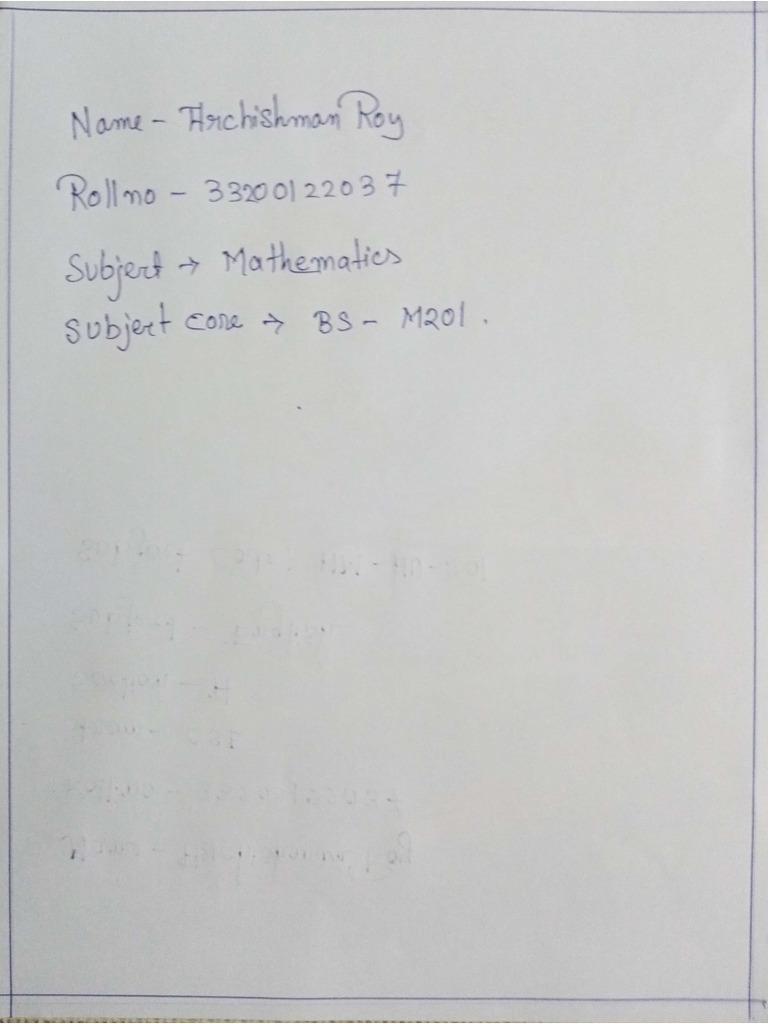 Name - Archishman Roy
Roll no - 33200122037
Subject → Mathematics
Subject code → BS - M201.